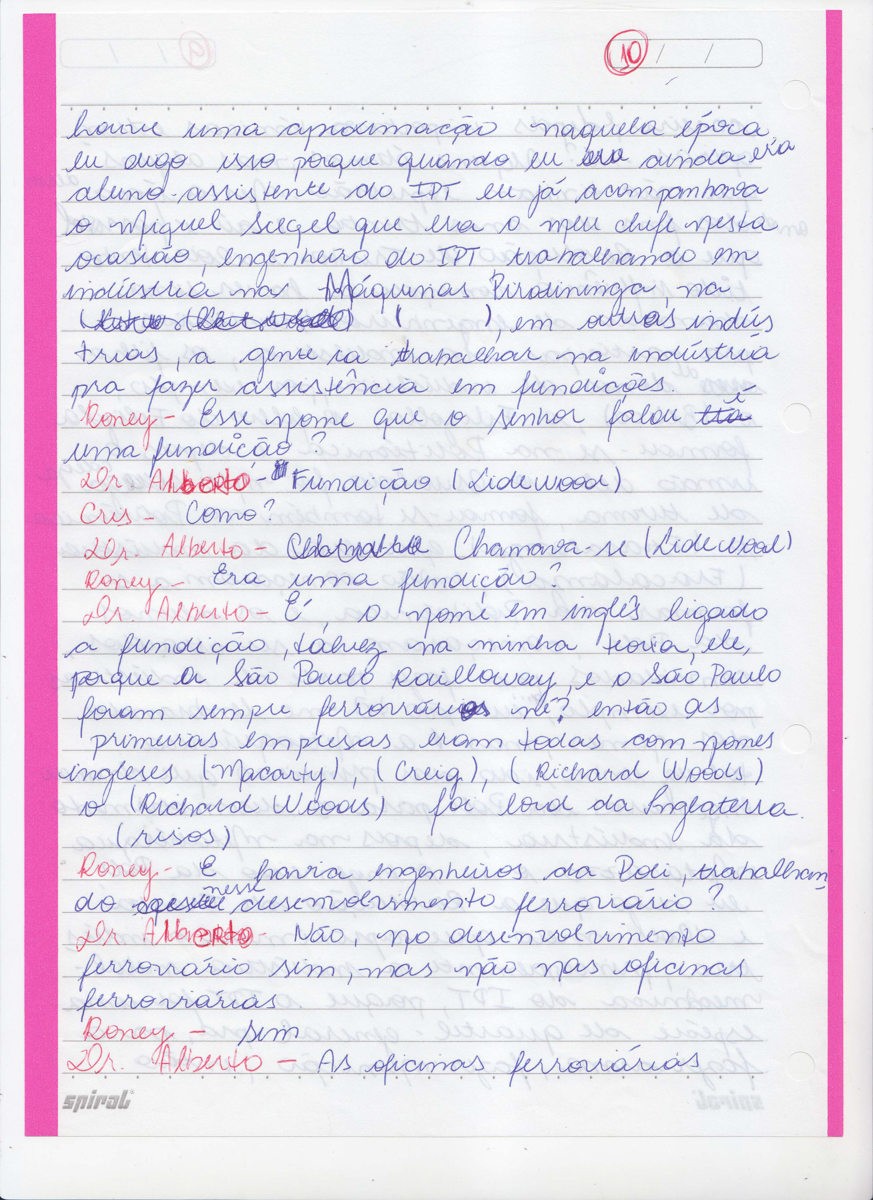 10 / /
houve uma aproximação naquela época
eu digo isso porque quando eu era ainda era
aluno-assistente do IPT eu já acompanhava
o Miguel Siegel que era o meu chefe nesta
ocasião, engenheiro do IPT trabalhando em
indústria nas Máquinas Piratininga, na
( ), em outras indús
trias, a gente ia trabalhar na indústria
pra fazer assistência em fundições.
Roney - Esse nome que o senhor falou é
uma fundição?
Dr. Alberto - Fundição (Lidewood)
Cris - Como?
Dr. Alberto - Chamava-se (Lidewood)
Roney - Era uma fundição?
Dr. Alberto - É, o nome em inglês ligado
a fundição, talvez na minha teoria, ele,
porque a São Paulo Railloway, e o São Paulo
foram sempre ferroviários né? então as
primeiras empresas eram todas com nomes
ingleses (Macarty), (Creig), (Richard Woods)
o (Richard Woods) foi lord da Inglaterra.
(risos)
Roney - E havia engenheiros da Poli, trabalhan
do nesse desenvolvimento ferroviário?
Dr. Alberto - Não, no desenvolvimento
ferroviário sim, mas não nas oficinas
ferroviárias
Roney - sim
Dr. Alberto - As oficinas ferroviárias
spiral